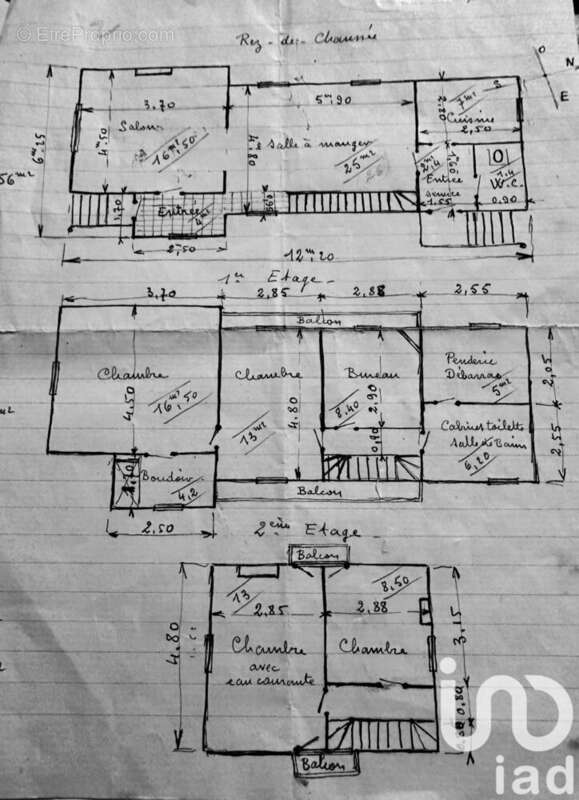 © EtreProprio.com
Rez-de-Chaussée
O
N
E
3,70
5m,90
7m²
2,80
Cuisine
2,50
Salon
4,50
16m²,50
6m,25
4,80
Salle à manger
25m²
56m²
Entrée
service
1,55
1,4
W.C.
0,90
1,70
Entrée
4
2,50
12m,20
1er Etage
3,70
2,85
2,88
2,55
Balcon
Chambre
Chambre
Bureau
Penderie
Débarras
5m²
2,05
4,50
16m²,50
13m²
4.80
8.40
2,90
0,90
Cabinet toilette
Salle de Bain
6,20
2,55
Boudoir
1,70
4,2
Balcon
2.50
2ème Etage
Balcon
13
8,50
2,85
2,88
4.80
3,15
Chambre
avec
eau courante
Chambre
0,80
Balcon
iad